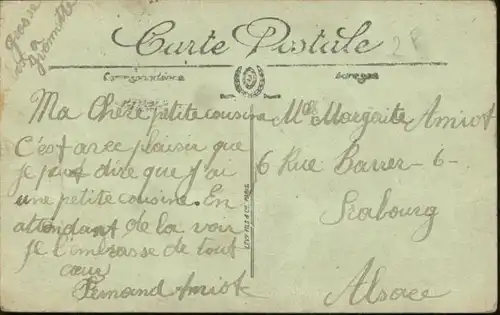 grosse
Carte Postale
Correspondance
Adresse
Ma Chère petite cousine
C'est avec plaisir que
je peut dire que j'ai
une petite cousine. En
attendant de la voir
je l'embrasse de tout
cœur
Fernand Amiot
LEVY FILS & Cie PARIS
Mlle Margerite Amiot
6 Rue Barrer - 6 -
Srabourg
Alsace